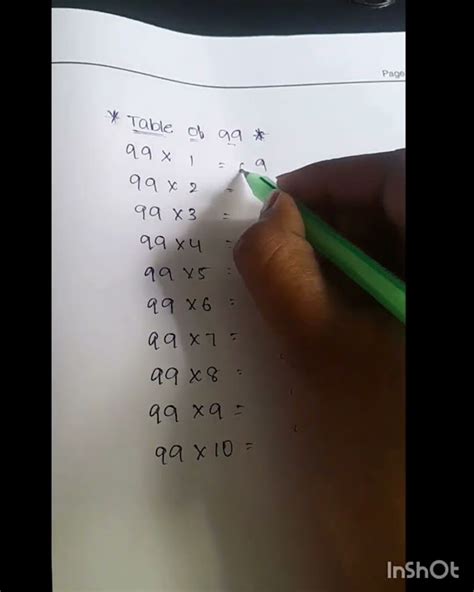 Page
* Table of 99 *
99 x 1 = 9
99 x 2 =
99 x 3 =
99 x 4 =
99 x 5 =
99 x 6 =
99 x 7 =
99 x 8 =
99 x 9 =
99 x 10 =
InShOt